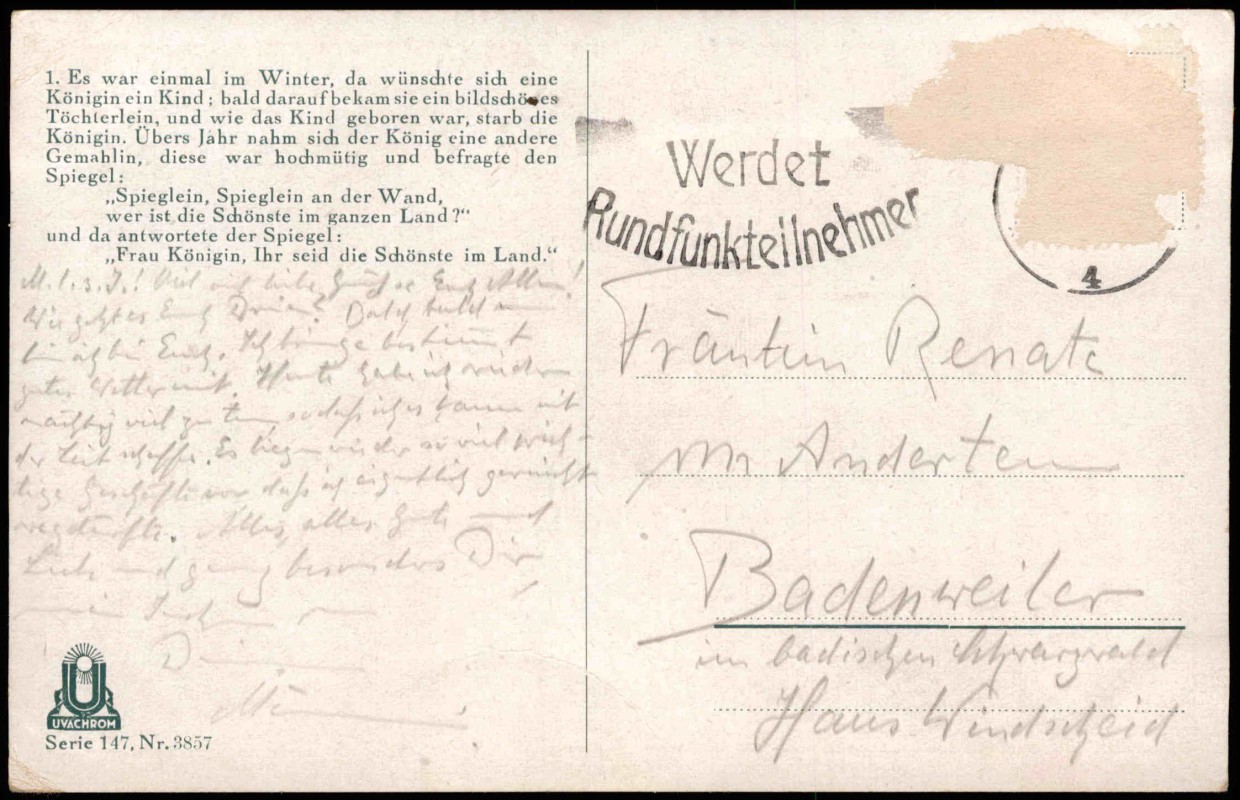 1. Es war einmal im Winter, da wünschte sich eine
Königin ein Kind; bald darauf bekam sie ein bildschönes
Töchterlein, und wie das Kind geboren war, starb die
Königin. Übers Jahr nahm sich der König eine andere
Gemahlin, diese war hochmütig und befragte den
Spiegel:
„Spieglein, Spieglein an der Wand,
wer ist die Schönste im ganzen Land?“
und da antwortete der Spiegel:
„Frau Königin, Ihr seid die Schönste im Land.“
Viel liebe Grüße Euch Allen!
Wie geht es Euch Bald
bin ich bei Euch. Ich bringe bestimmt
gutes Wetter mit. Heute habe ich wieder
mächtig viel zu tun, sodaß ich es kaum mit
der Zeit schaffe. Es liegen wieder so viel wich-
tige Geschäfte vor, daß ich eigentlich garnicht
weg dürfte. Alles, alles Gute und
Liebe und ganz besonders Dir
UVACHROM
Serie 147, Nr. 3857
Werdet
Rundfunkteilnehmer
4
Fräulein Renate
von Anderten
Badenweiler
im badischen Schwarzwald
Haus Windscheid